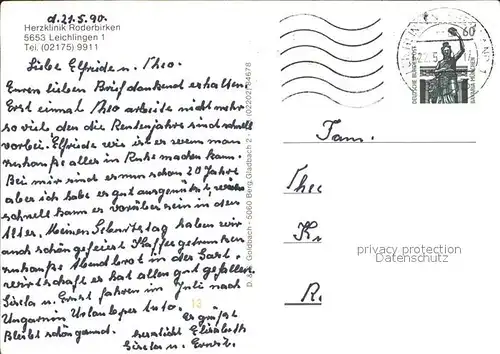 d. 21.5.90.
Herzklinik Roderbirken
5653 Leichlingen 1
Tel. (02175) 9911
Liebe Elfriede u. Theo.
Euren lieben Brief dankend erhalten
Erst einmal Theo arbeite nicht mehr
so viel, den die Rentenjahre sind schnell
vorbei. Elfriede wie ist es wenn man
zuhause alles in Ruhe machen kann.
Bei mir sind es nun schon 20 Jahre
aber ich habe es gut ausgenützt,
schnell kann es vorüber sein in den
Meinen Geburtstag haben wir
auch schön gefeiert Kaffee getrunken
zuhause Abendbrot in der Gast.
wirtschaft es hat allen gut gefallen.
Gisela u. Ernst fahren im Juli nach
Ungarn in Urlaub per Auto.
Es grüßt
Bleibt schön gesund. herzlichst Elisabeth
Gisela u. Ernst.
13
D. & Goldbach - 5060 Berg. Gladbach 2 (02202) 84678
60
DEUTSCHE BUNDESPOST
BAVARIA MÜNCHEN
Fam.
Theo
K
R.
privacy protection
Datenschutz